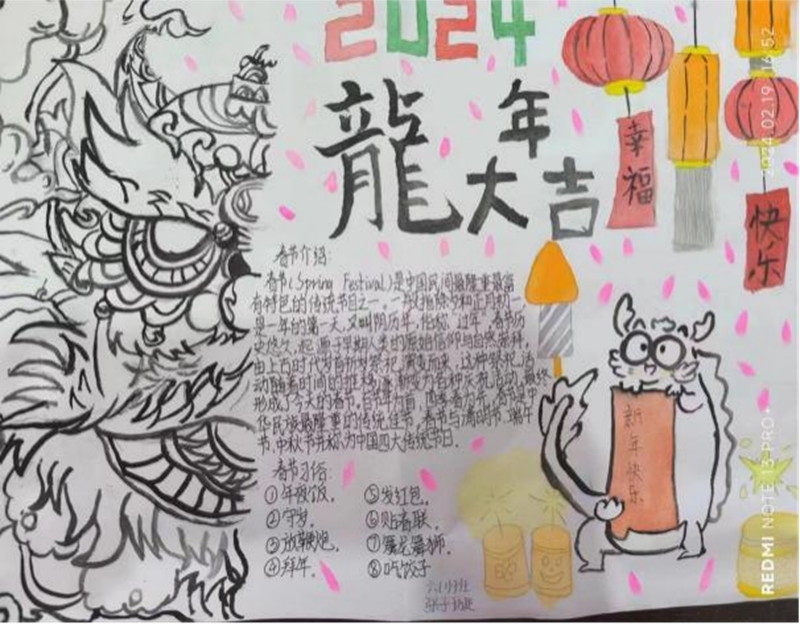 2024
龍年
大吉
幸福
快乐
春节介绍:
春节(Spring Festival)是中国民间最隆重最富
有特色的传统节日之一。一般指除夕和正月初一
是一年的第一天,又叫阴历年,俗称“过年”。春节历
史悠久,起源于早期人类的原始信仰与自然崇拜,
由上古时代岁首祈岁祭祀演变而来。这种祭祀活
动随着时间的推移逐渐变为各种庆祝活动,最终
形成了今天的春节。百节年为首,四季春为先,春节是中
华民族最隆重的传统佳节。春节与清明节、端午
节、中秋节并称为中国四大传统节日。
春节习俗:
①年夜饭。 ⑤发红包。
②守岁。 ⑥贴春联。
③放鞭炮。 ⑦舞龙舞狮。
④拜年。 ⑧吃饺子
新年快乐
六(1)班
REDMI NOTE 13 PRO+
2024.02.19 16:52